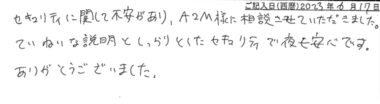 ご記入日(西暦)2023年6月17日
セキュリティに関して不安があり、A2M様に相談させていただきました。
ていねいな説明としっかりとしたセキュリティで夜も安心です。
ありがとうございました。